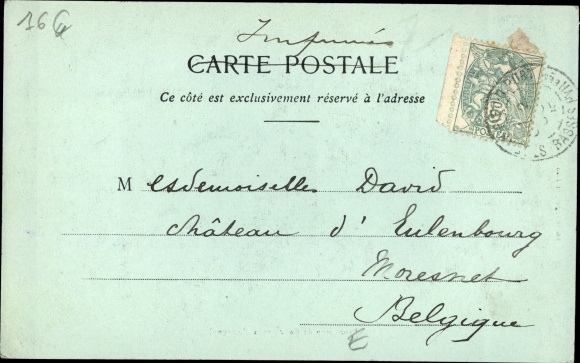 166
Imprimés
CARTE POSTALE
Ce côté est exclusivement réservé à l'adresse
Mesdemoiselles David
château d'Eulenbourg
Moresnet
Belgique
E